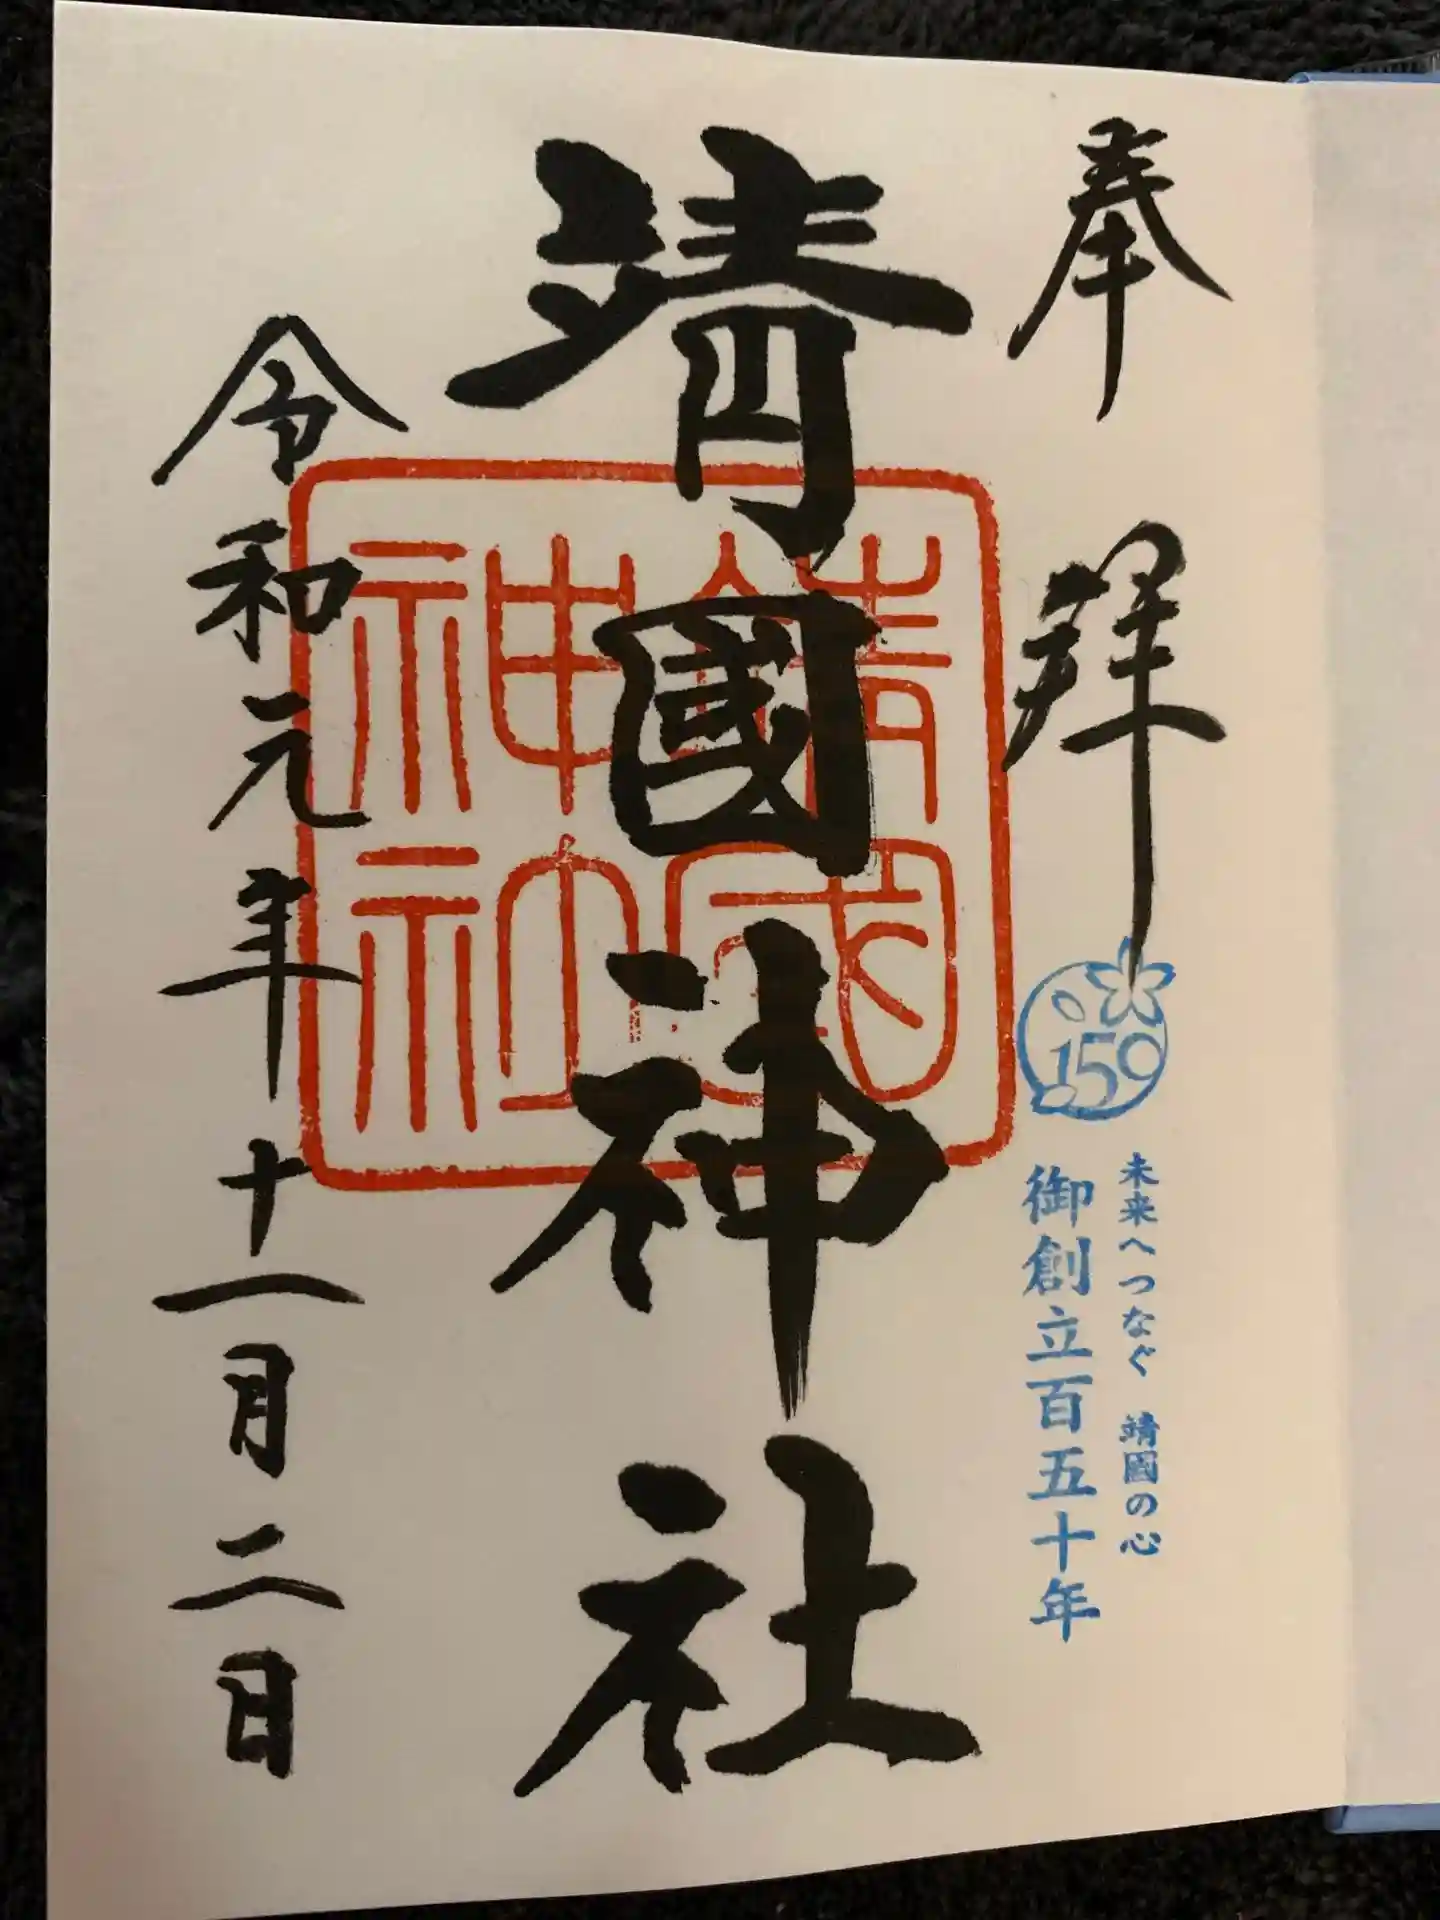 奉拝
159
未来へつなぐ 靖國の心
御創立百五十年
靖國神社
靖國神社
令和元年十一月二日